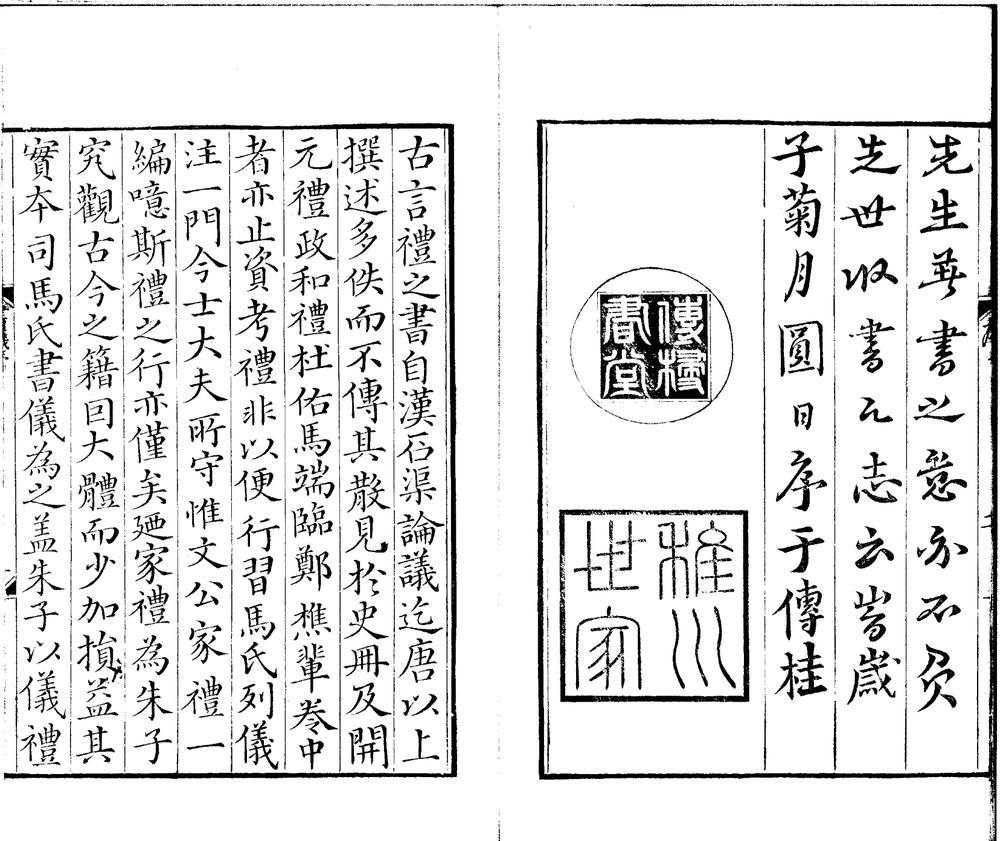 先生著書之意亦不負
先世收書之志云峕歲
子菊月圓日序于傳桂
傳桂
書堂
稚川
世家
古言禮之書自漢石渠論議迄唐以上
撰述多佚而不傳其散見扵史冊及開
元禮政和禮杜佑馬端臨鄭樵輩卷中
者亦止資考禮非以便行習馬氏列儀
注一門今士大夫所守惟文公家禮一
編噫斯禮之行亦僅矣廼家禮為朱子
究觀古今之籍因大體而少加損益其
實本司馬氏書儀為之盖朱子以儀禮